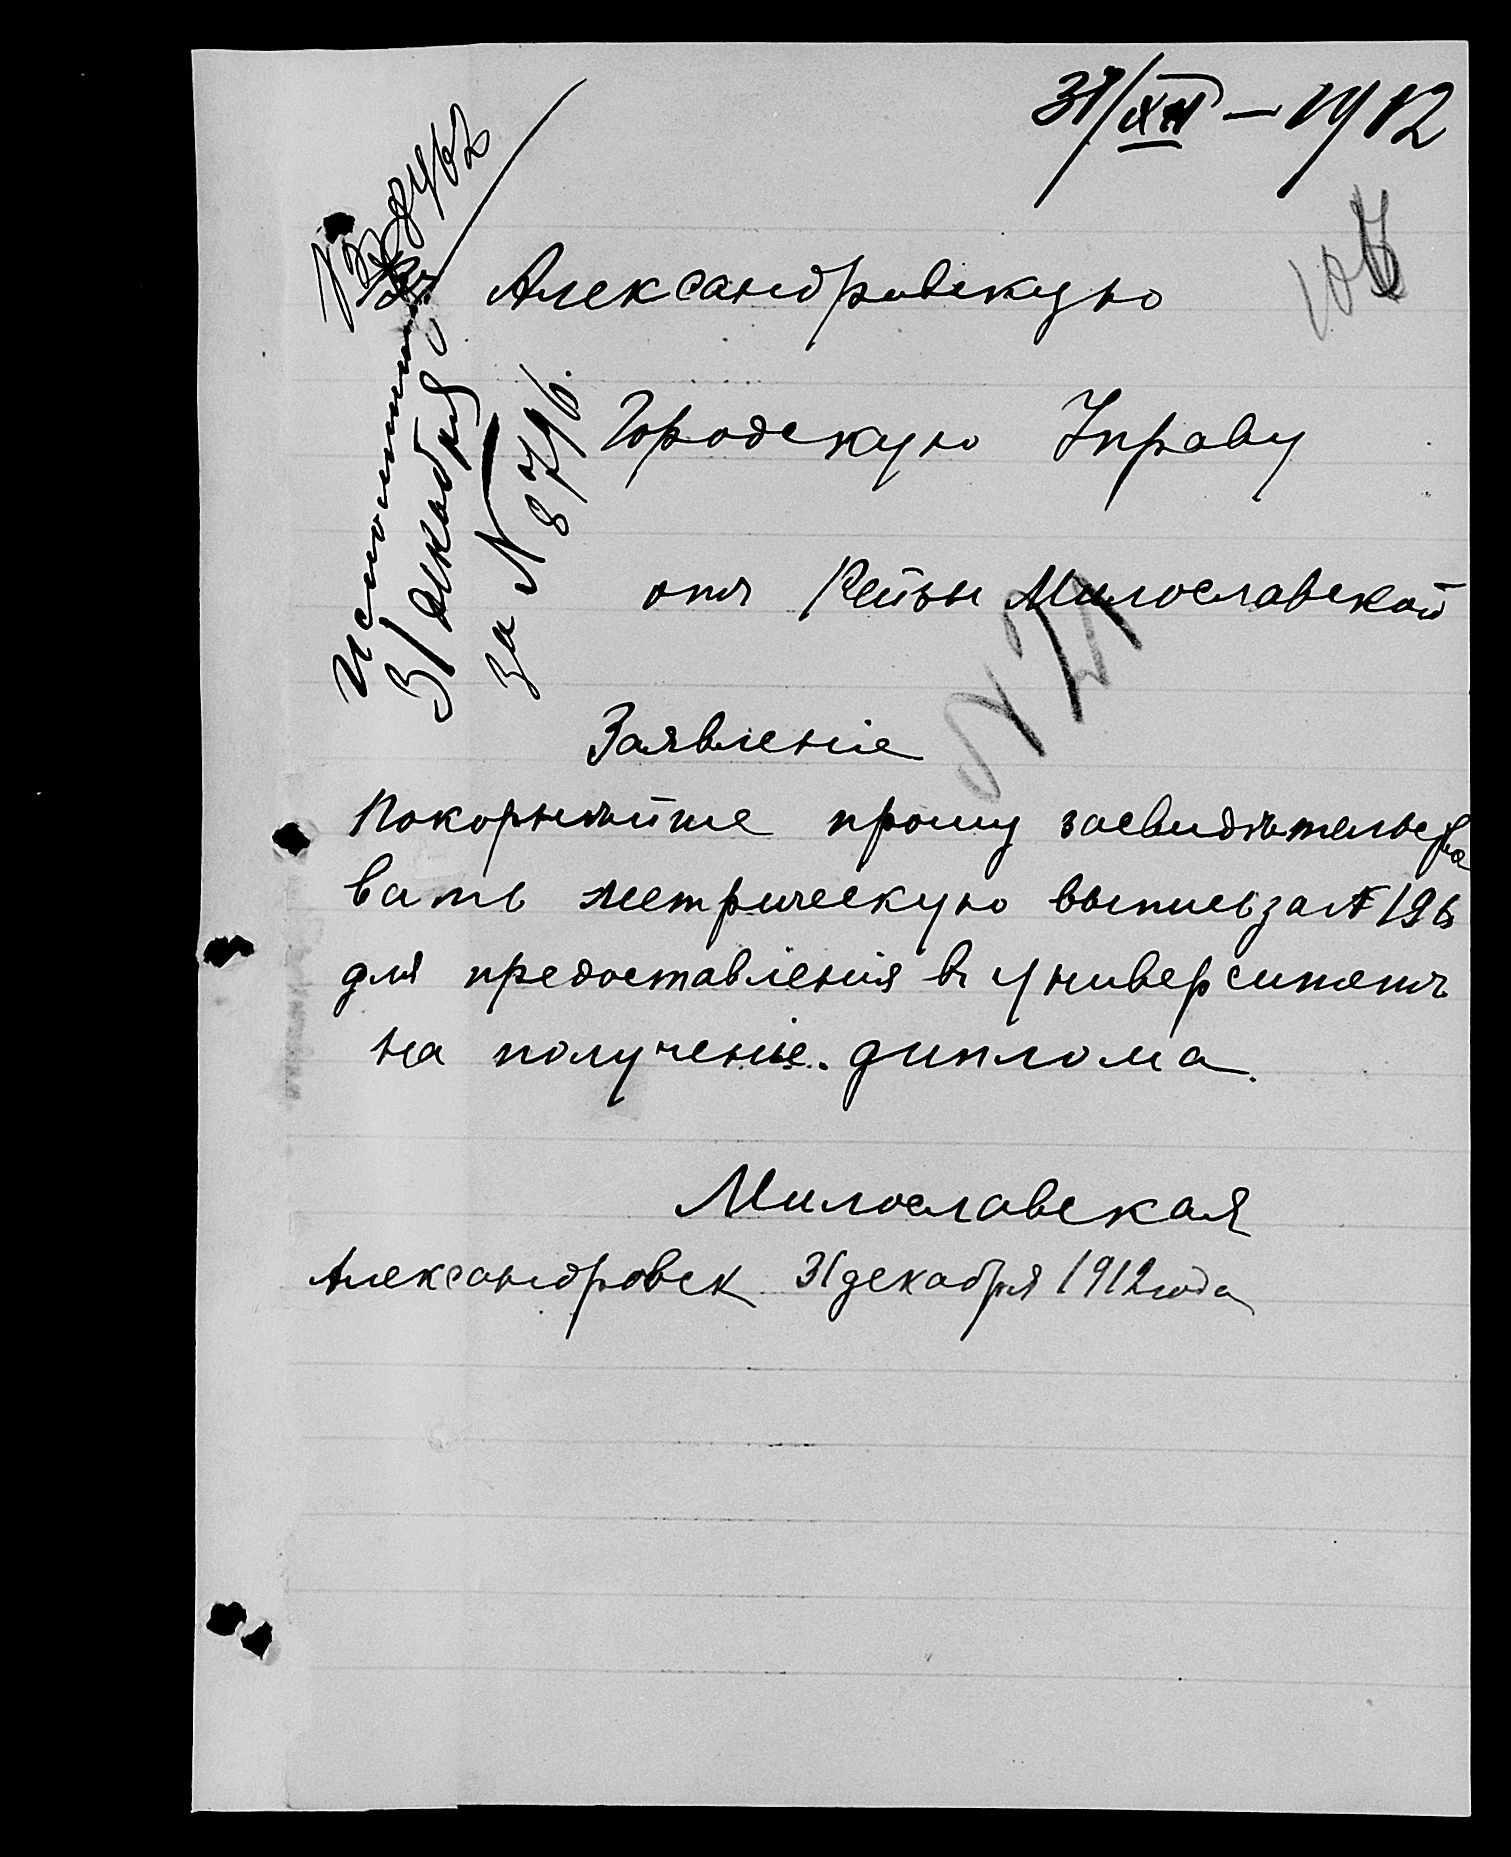 31/XII – 1912
Въ Александровскую
Городскую Управу
отъ Рейзы Милославской
Исполнено
31 декабря
за № 8796.
№ 21
Заявленіе
Покорнѣйше прошу засвидѣтельство
вать метрическую выпись за № 196
для предоставленія въ университетъ
на полученіе диплома.
Милославская
Александровск 31 декабря 1912 года